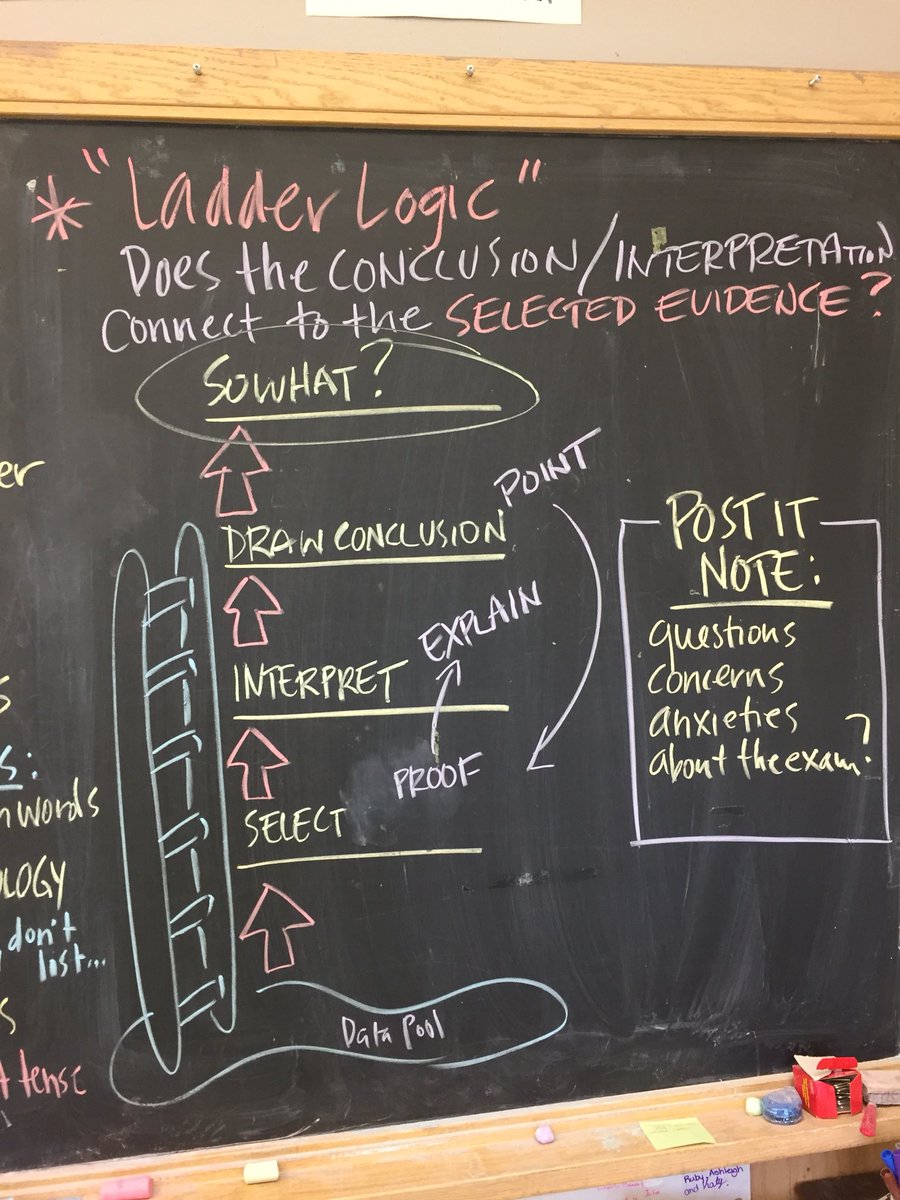 * "Ladder Logic"
Does the CONCLUSION/INTERPRETATION
Connect to the SELECTED EVIDENCE?
SO WHAT?
DRAW CONCLUSION
POINT
EXPLAIN
INTERPRET
PROOF
SELECT
Data Pool
POST IT
NOTE:
questions
concerns
anxieties
about the exam?
er
s
s:
n words
OLOGY
don't
list...
s
t tense
Ruby, Ashleigh
and